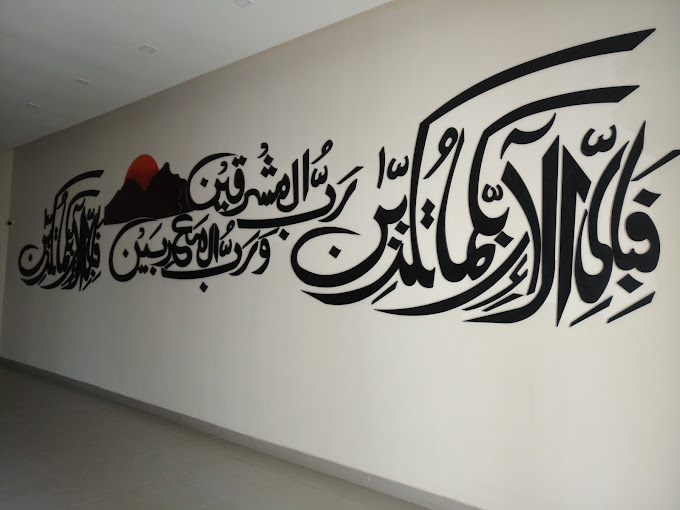 فَبِأَيِّ آلَاءِ رَبِّكُمَا تُكَذِّبَانِ
رَبُّ الْمَشْرِقَيْنِ
وَرَبُّ الْمَغْرِبَيْنِ
فَبِأَيِّ آلَاءِ رَبِّكُمَا تُكَذِّبَانِ